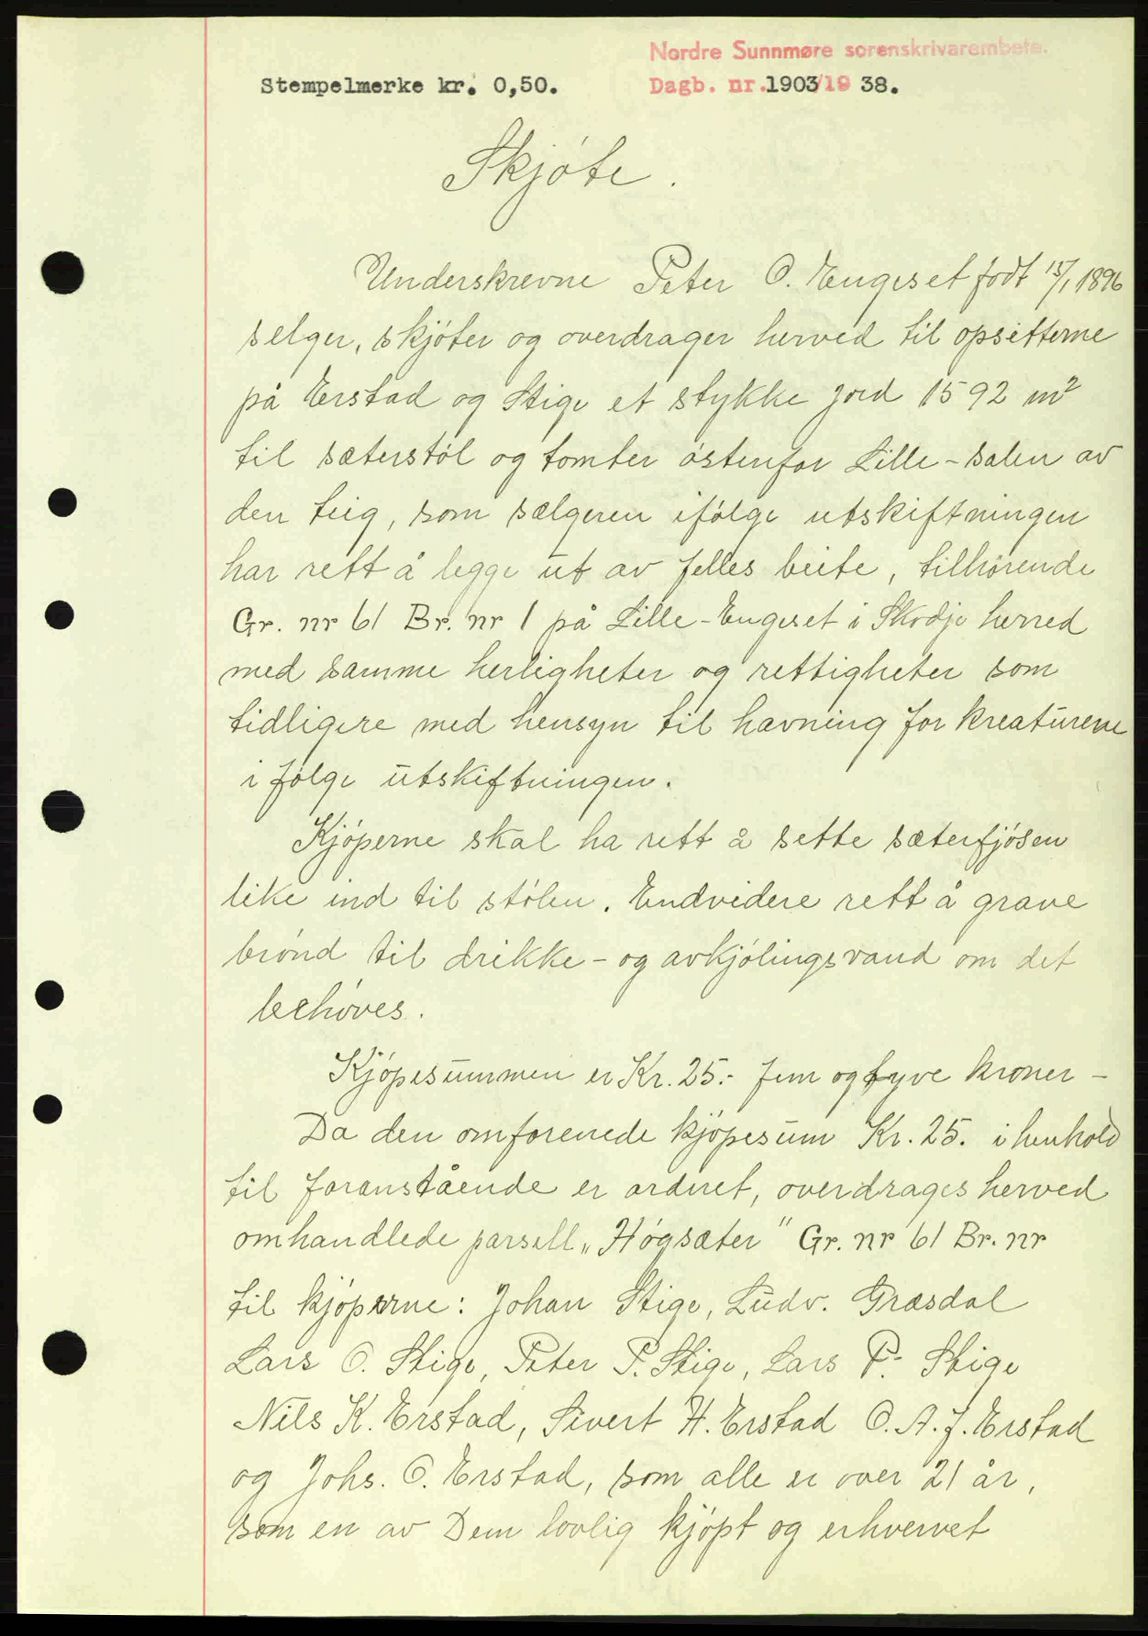 Nordre Sunnmøre sorenskrivarembete.
Stempelmerke kr. 0,50. Dagb. nr. 1903/19 38.
Skjøte.
Underskrevne Peter O. Engeset født 15/1 1896
selger, skjøter og overdrager herved til opsitterne
på Erstad og Stige et stykke jord 1592 m²
til sæterstøl og tomter østenfor Lille-salen av
den teig, som sælgeren ifølge utskiftningen
har rett å legge ut av felles beite, tilhørende
Gr. nr 61 Br. nr 1 på Lille-Engeset i Skodje herred
med samme herligheter og rettigheter som
tidligere med hensyn til havning for kreaturene
i følge utskiftningen.
Kjøperne skal ha rett å sette sæterfjøsen
like ind til stølen. Endvidere rett å grave
brønd til drikke- og avkjølingsvand om det
behøves.
Kjøpesummen er Kr. 25.- fem og tyve kroner -
Da den omforenede kjøpesum Kr. 25. i henhold
til foranstående er ordnet, overdrages herved
omhandlede parsell „Høgsæter" Gr. nr 61 Br. nr
til kjøperne: Johan Stige, Ludv. Græsdal
Lars O. Stige, Peter P. Stige, Lars P. Stige
Nils K. Erstad, Sivert H. Erstad O. A. J. Erstad
og Johs. O. Erstad, som alle er over 21 år,
som en av Dem lovlig kjøpt og erhvervet